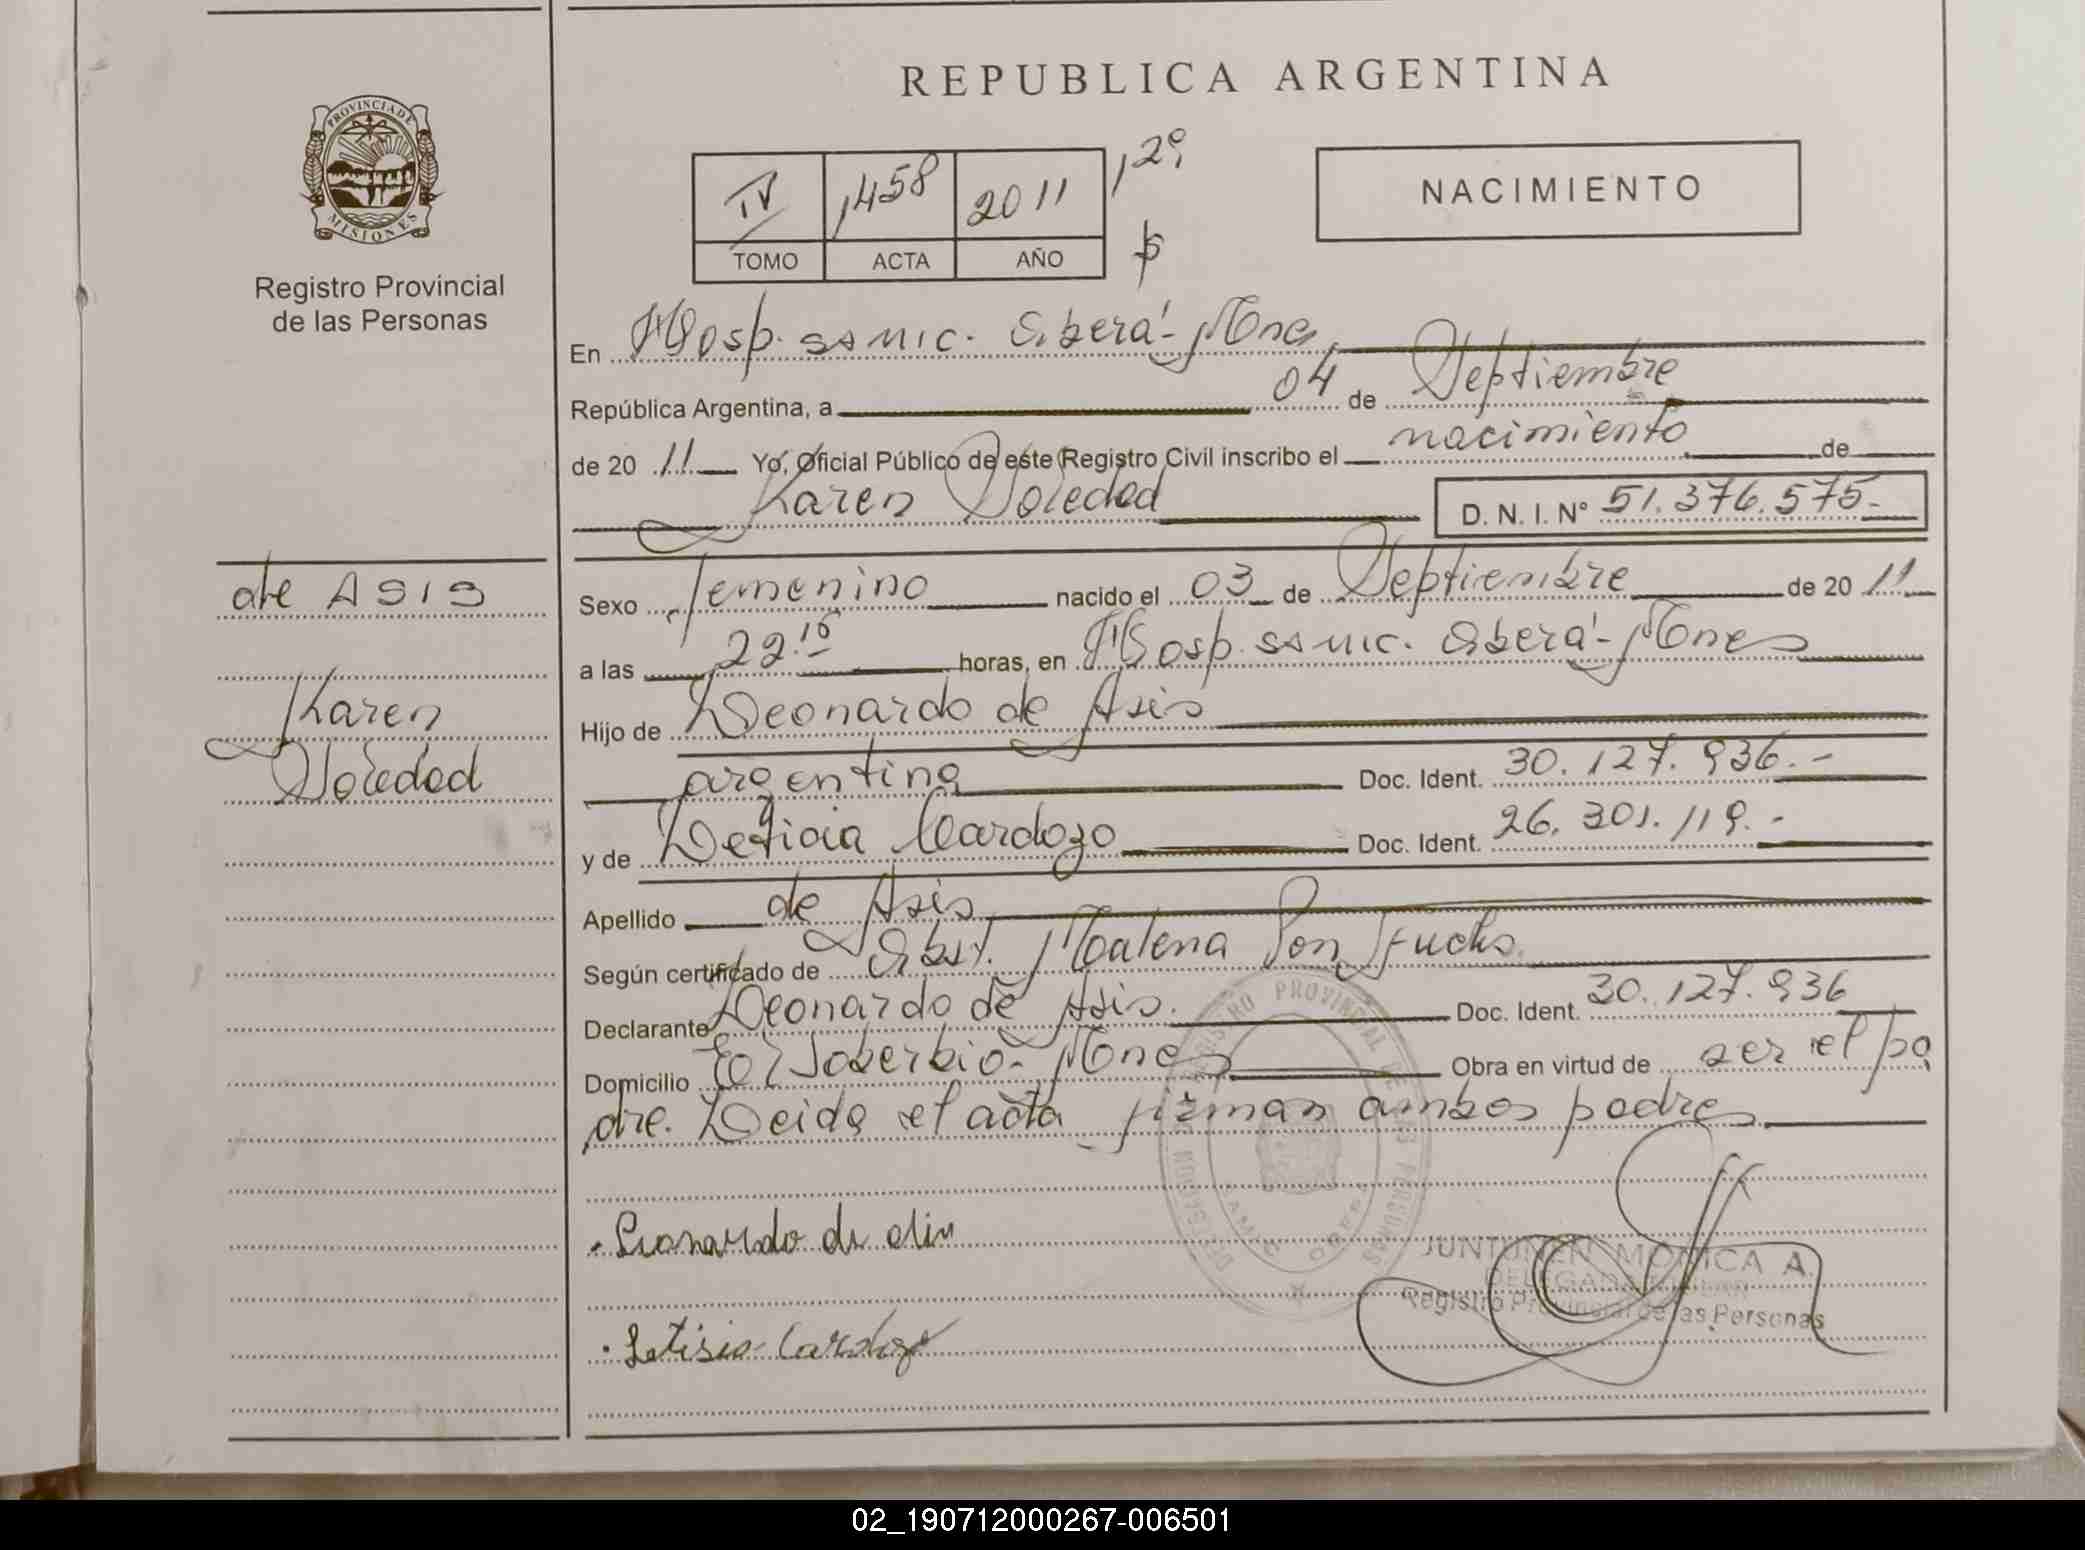 REPUBLICA ARGENTINA
PROVINCIA DE MISIONES
Registro Provincial
de las Personas
NACIMIENTO
IV 1458 2011
TOMO ACTA AÑO
En Hosp. SAMIC. Oberá - Mnes
República Argentina, a 04 de Septiembre
de 20 11 Yo, Oficial Público de este Registro Civil inscribo el nacimiento de
Karen Soledad D. N. I. N° 51.376.575.-
de ASIS
Karen
Soledad
Sexo femenino nacido el 03 de Septiembre de 20 11
a las 22.15 horas, en Hosp. SAMIC. Oberá - Mnes
Hijo de Leonardo de Asis
argentina Doc. Ident. 30.127.936.-
y de Leticia Cardozo Doc. Ident. 26.301.119.-
Apellido de Asis
Según certificado de Obst. Malena Fuchs
Declarante Leonardo de Asis. Doc. Ident. 30.127.936
Domicilio El Soberbio - Mnes Obra en virtud de ser el pa
dre. Leida el acta firman ambos padres
Leonardo de Asis
Letisia Cardozo
REGISTRO PROVINCIAL DE LAS PERSONAS
JUNTUNEN MONICA A.
Registro Provincial de las Personas
02_190712000267-006501